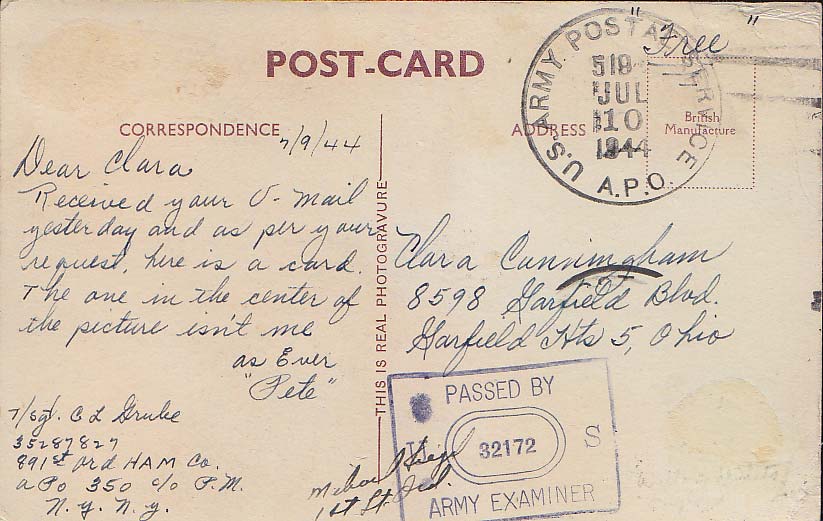 POST-CARD
"Free"
U.S. ARMY POSTAL SERVICE
519
JUL
10
1944
A.P.O.
British
Manufacture
CORRESPONDENCE
ADDRESS
7/9/44
Dear Clara
Received your V-Mail
yesterday and as per your
request, here is a card.
The one in the center of
the picture isn't me
as Ever
"Pete"
T/Sgt. C L Grube
35287827
891st Ord HAM Co.
APO 350 c/o P.M.
N.Y. N.Y.
THIS IS REAL PHOTOGRAVURE
Clara Cunningham
8598 Garfield Blvd.
Garfield Hts 5, Ohio
PASSED BY
32172
S
ARMY EXAMINER
1st Lt. Ord.